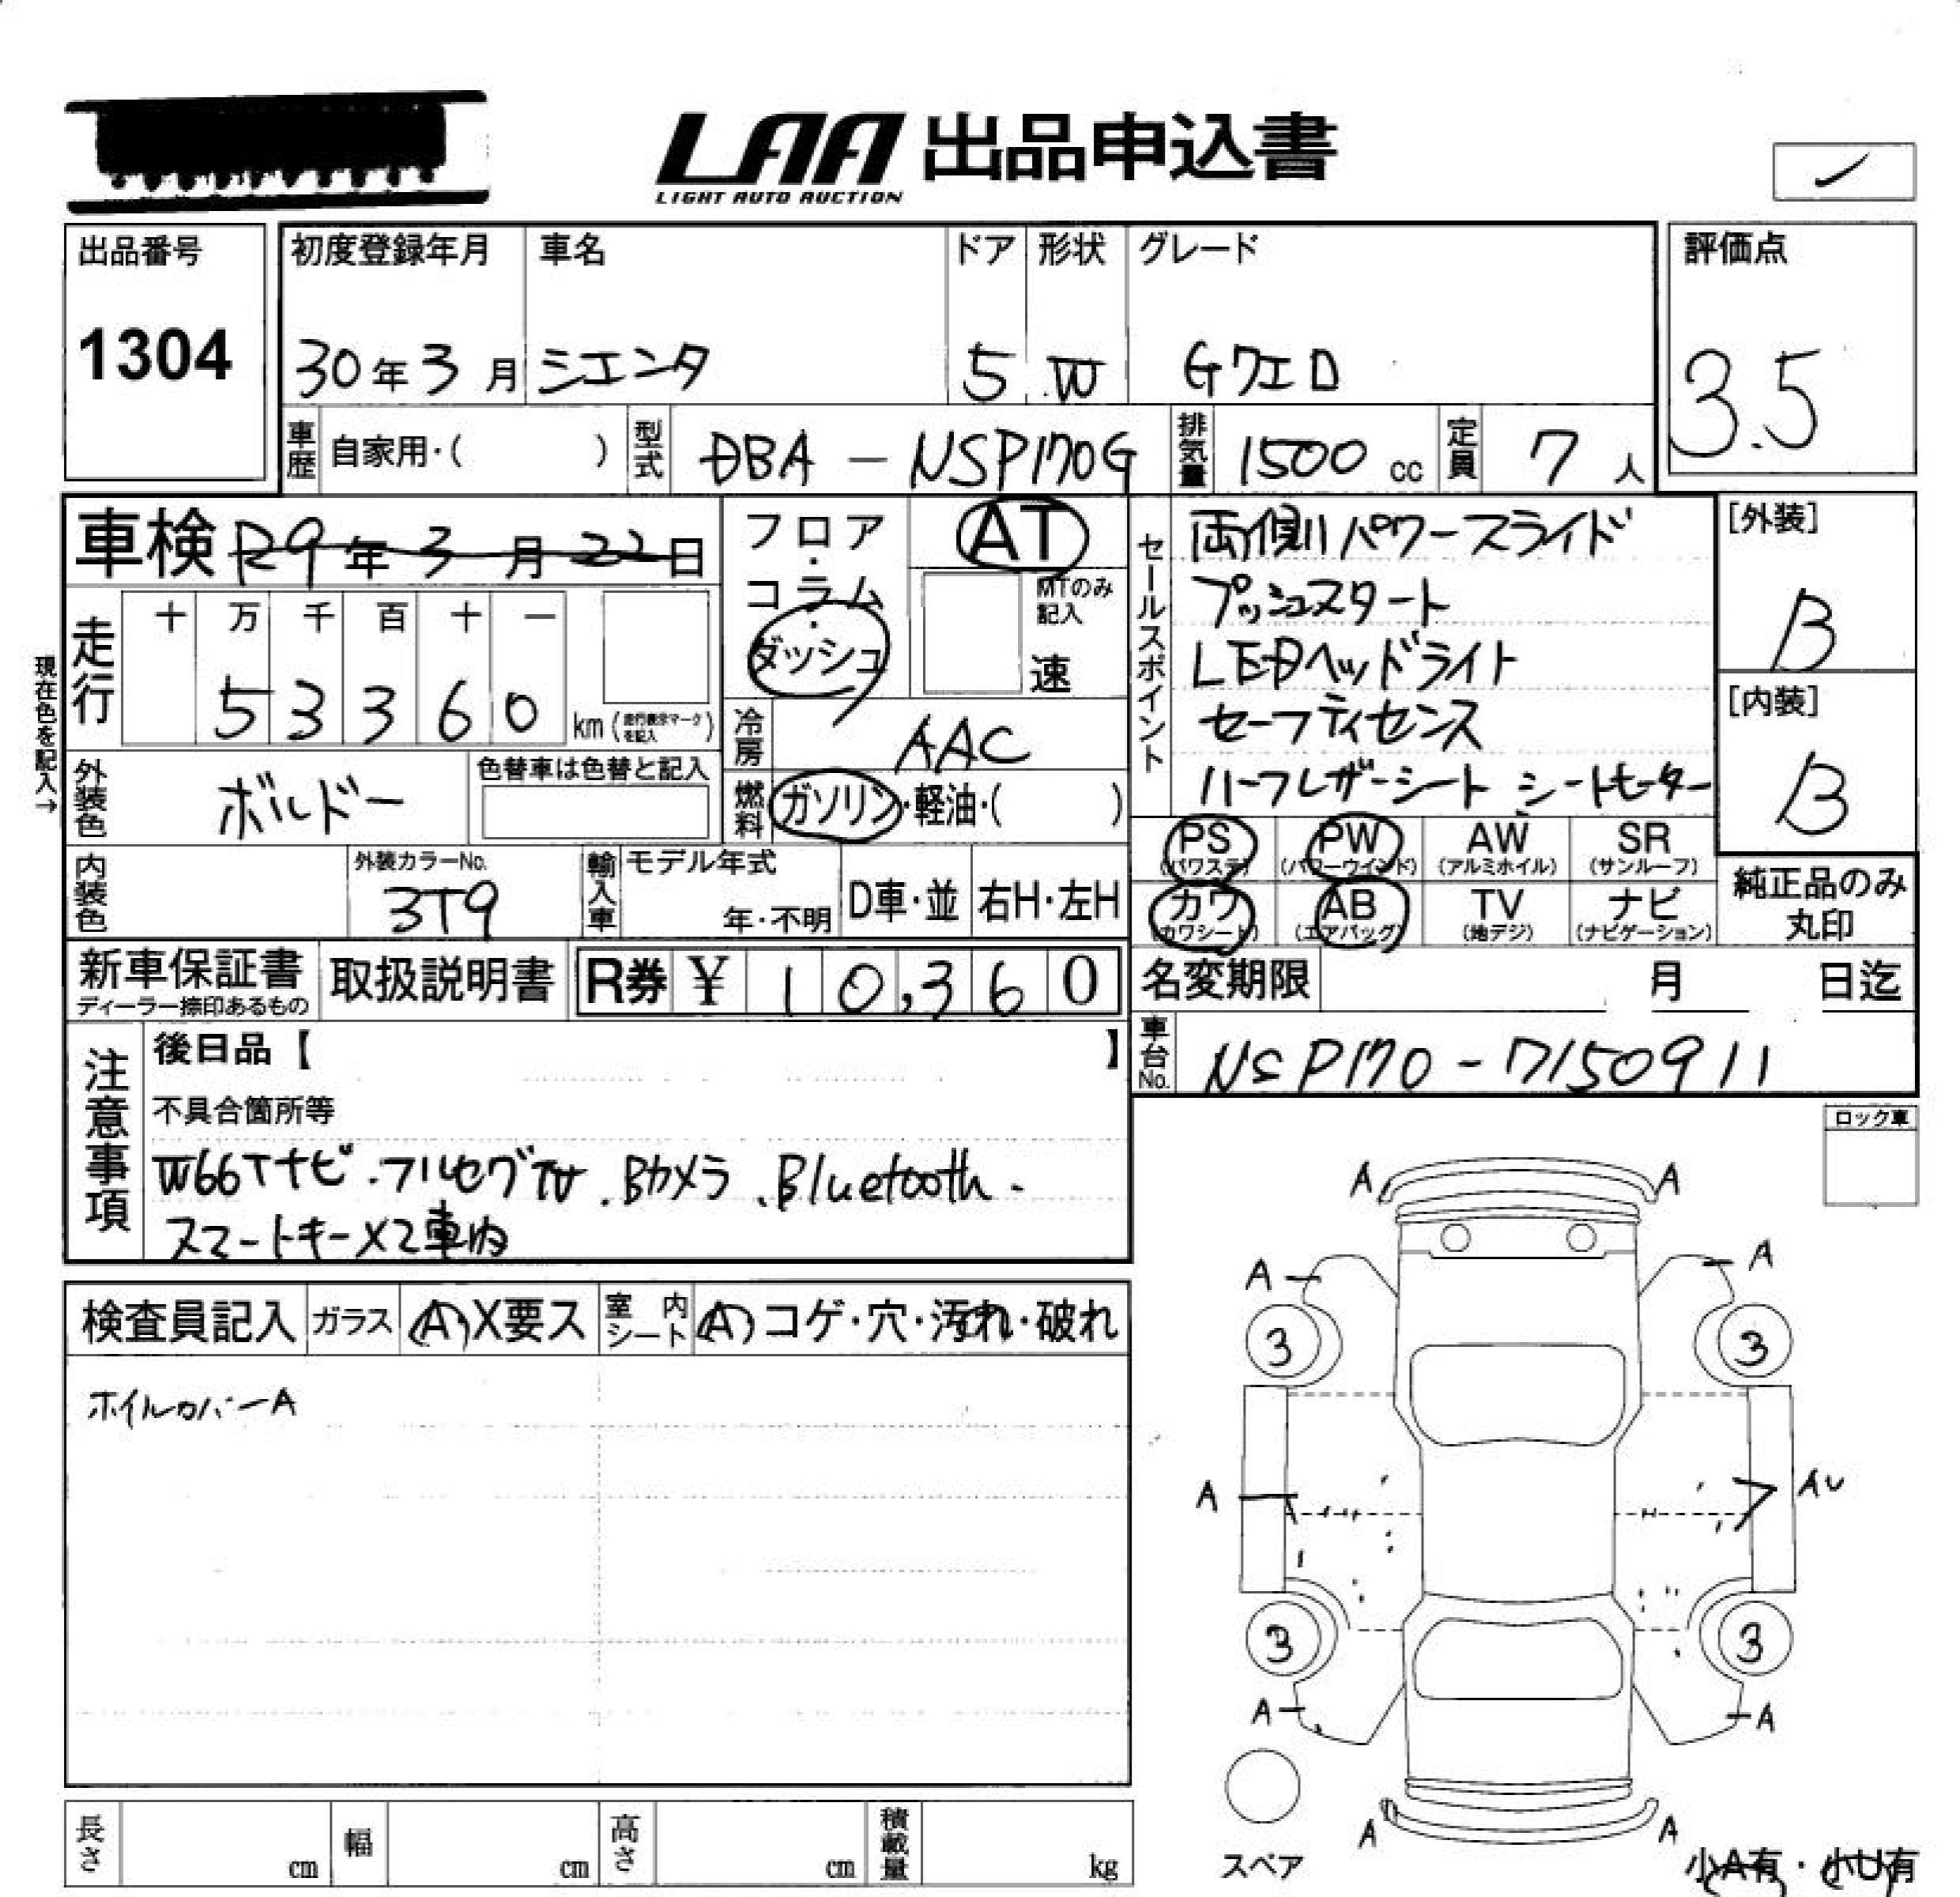 LAA 出品申込書
LIGHT AUTO AUCTION
出品番号
1304
初度登録年月 車名 ドア 形状 グレード
30年3月 シエンタ 5 W Gクエロ
評価点
3.5
車歴 自家用・( ) 型式 DBA - NSP170G 排気量 1500 cc 定員 7 人
車検 R9年3月22日
フロア・コラム・ダッシュ
AT
MTのみ記入
速
セールスポイント
両側パワースライド
プッシュスタート
LEDヘッドライト
セーフティセンス
ハーフレザーシート シートヒーター
[外装]
B
[内装]
B
現在色を記入→
走行 十 万 千 百 十 一
5 3 3 6 0 km (走行表示マークを記入)
冷房 AAC
外装色 ボルドー 色替車は色替と記入
燃料 ガソリン・軽油・( )
PS (パワステ) PW (パワーウインド) AW (アルミホイル) SR (サンルーフ)
カワ (カワシート) AB (エアバッグ) TV (地デジ) ナビ (ナビゲーション)
純正品のみ
丸印
内装色 外装カラーNo. 3T9 輸入車 モデル年式 年・不明 D車・並 右H・左H
新車保証書 取扱説明書 R券 ¥ 10,360
ディーラー捺印あるもの
名変期限 月 日迄
車台No. NSP170-7150911
注意事項
後日品【 】
不具合箇所等
W66Tナビ.フルセグTV.Bカメラ.Bluetooth.
スマートキー×2車内
ロック車
検査員記入 ガラス A X要ス 室内シート A コゲ・穴・汚れ・破れ
ホイルカバーA
A A
A A
3 3
A AU
3 3
A A
A A
スペア
小A有・小U有
長さ cm 幅 cm 高さ cm 積載量 kg